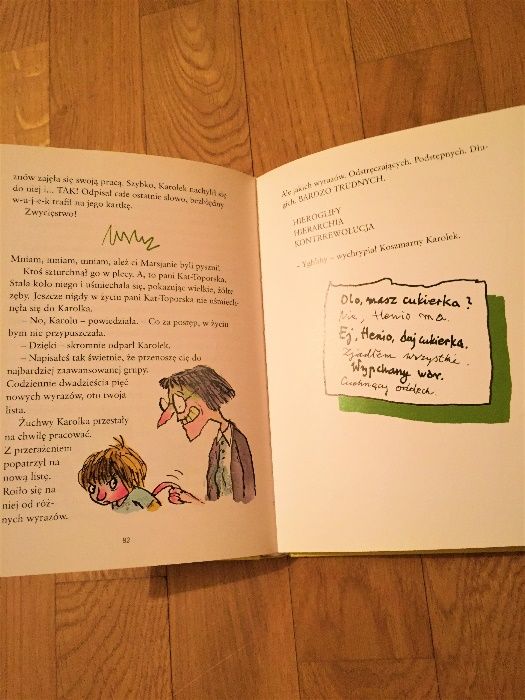 znów zajęła się swoją pracą. Szybko, Karolek nachylił się
do niej i... TAK! Odpisał całe ostatnie słowo, bezbłędny
w-u-j-e-k trafił na jego kartkę.
Zwycięstwo!
Mniam, mniam, mniam, ależ ci Marsjanie byli pyszni!
Ktoś szturchnął go w plecy. A, to pani Kat-Toporska.
Stała koło niego i uśmiechała się, pokazując wielkie, żółte
zęby. Jeszcze nigdy w życiu pani Kat-Toporska nie uśmiech-
nęła się do Karolka.
– No, Karolu – powiedziała. – Co za postęp, w życiu
bym nie przypuszczała.
– Dzięki – skromnie odparł Karolek.
– Napisałeś tak świetnie, że przenoszę cię do
najbardziej zaawansowanej grupy.
Codziennie dwadzieścia pięć
nowych wyrazów, oto twoja
lista.
Żuchwy Karolka przestały
na chwilę pracować.
Z przerażeniem
popatrzył na
nową listę.
Roiło się na
niej od róż-
nych wyrazów.
82
Ale jakich wyrazów. Odstręczających. Podstępnych. Dłu-
gich. BARDZO TRUDNYCH.
HIEROGLIFY
HIERARCHIA
KONTRREWOLUCJA
– Yghhhy – wychrypiał Koszmarny Karolek.
Olo, masz cukierka?
Nie, Henio ma.
Ej, Henio, daj cukierka.
Zjadłem wszystkie.
Wypchany wór.
Cuchnący oddech.